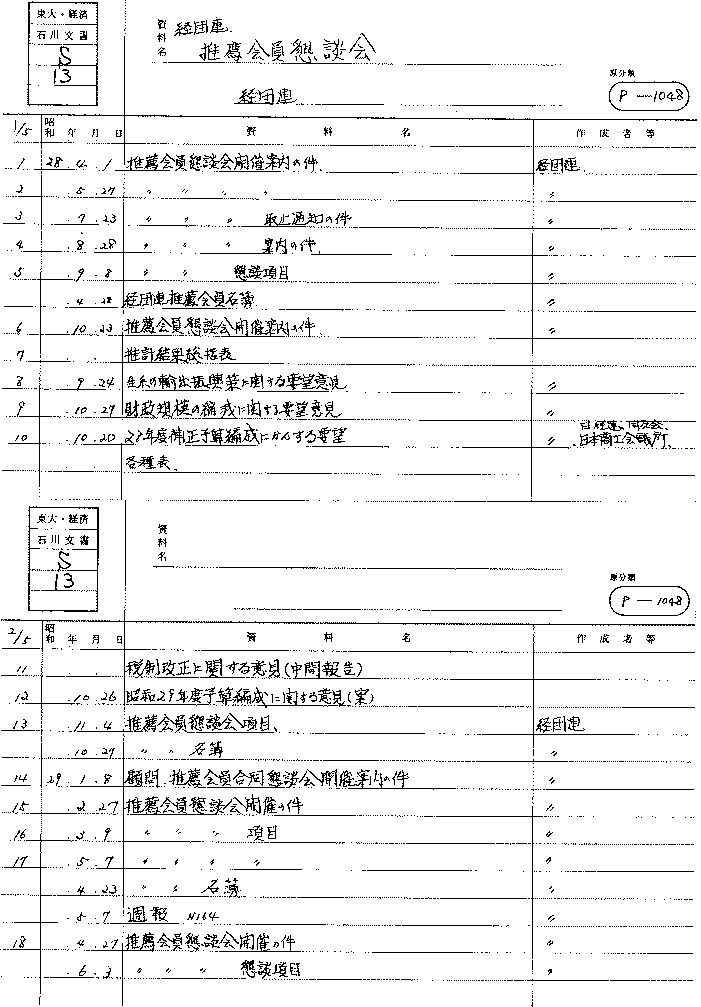 東大・経済
石川文書
S
13
資料名 経団連
推薦会員懇談会
経団連
原分類
P-1048
1/5 昭和 年 月 日 資料名 作成者等
1 28 4 1 推薦会員懇談会開催案内の件 経団連
2 . 5 . 27 〃 〃 〃 〃 〃
3 . 7 . 23 〃 〃 〃 取止通知の件 〃
4 . 8 . 28 〃 〃 〃 案内の件 〃
5 . 9 . 8 〃 〃 懇談項目 〃
. 4 . 28 経団連推薦会員名簿 〃
6 . 10 . 23 推薦会員懇談会開催案内の件 〃
7 . . 推計結果総括表
8 . 9 . 24 生糸の輸出振興策に関する要望意見 〃
9 . 10 . 27 財政規模の縮減に関する要望意見 〃
10 . 10 . 20 28年度補正予算編成にかんする要望 〃 日経連、同友会、日本商工会議所
各種表
東大・経済
石川文書
S
13
資料名
原分類
P-1048
2/5 昭和 年 月 日 資料名 作成者等
11 . . 税制改正に関する意見(中間報告)
12 . 10 . 26 昭和29年度予算編成に関する意見(案)
13 . 11 . 4 推薦会員懇談会項目、 経団連
. 10 . 27 〃 〃 名簿 〃
14 29 . 1 . 8 顧問、推薦会員合同懇談会開催案内の件 〃
15 . 2 . 27 推薦会員懇談会開催の件 〃
16 . 3 . 9 〃 〃 〃 項目 〃
17 . 5 . 7 〃 〃 〃 〃 〃
. 4 . 23 〃 〃 名簿 〃
. 5 . 7 週報 N164 〃
18 . 4 . 27 推薦会員懇談会開催の件 〃
. 6 . 3 〃 〃 〃 懇談項目 〃